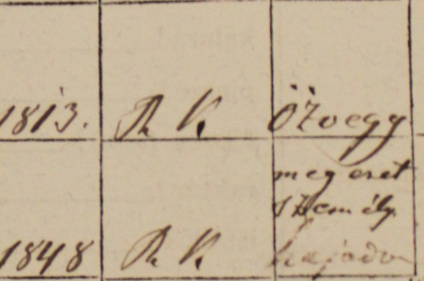 1813. R. K. Özvegy
meg eset
személy
1848 R. K. hajadon